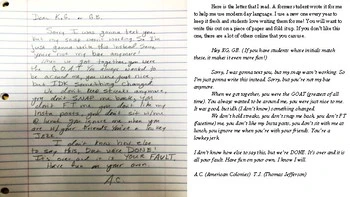 Dear K.G. or G.B.
Sorry, I was gonna text you
but my snap wasn't working. So I'm
just gonna write this instead. Sorry,
you're not my bae anymore.
When we got together you were
the G.O.A.T. You always wanted to
be around me, you were just nice,
but IDK something changed.
We don't hold streaks anymore,
you don't SNAP me back, you
don't FT me, you don't like my
Insta posts, you don't sit w/ me
@ lunch. You ignore me when you
are w/ your friends. You're a lowkey
JERK.
I don't know how else
to say this, but we're DONE!
It's over and is all YOUR FAULT.
Have fun on your own.
A.C.
Here is the letter that I read. A former student wrote it for me to
help me use modern day language. I use a new one every year to
keep it fresh and students love writing them for me! You will want to
write this out on a piece of paper and fold it up. If you don't like this
one, there are a lot of other online that you can use.
Hey KG, GB. (If you have students whose initials match
these, it makes it even more fun!)
Sorry, I was gonna text you, but my snap wasn't working. So
I'm just gonna write this instead. Sorry, but you're not my bae
anymore.
When we got together, you were the GOAT (greatest of all
time). You always wanted to be around me, you were just nice to me.
It was good, but idk (I don't know) something changed.
We don't hold streaks, you don't snap me back, you don't FT
(facetime) me, you don't like my Insta posts, you don't sit with me
at lunch, you ignore me when you're with your friends. You're a
lowkey jerk.
I don't know how else to say this, but we're DONE. It's over and it is
all your fault. Have fun on your own. I know I will.
A.C. (American Colonies) T.J. (Thomas Jefferson)